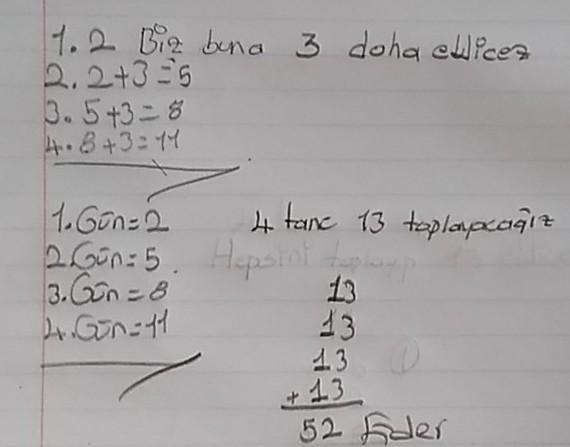 1.2 Biz buna 3 doha eklicez
2. 2+3=5
3. 5+3=8
4. 8+3=11
1.Gün=2
2.Gün=5
3.Gün=8
4.Gün=11
4 tanc 13 toplayacağız
Hepsini toplayıp
13
13
13
+13
52 Eder